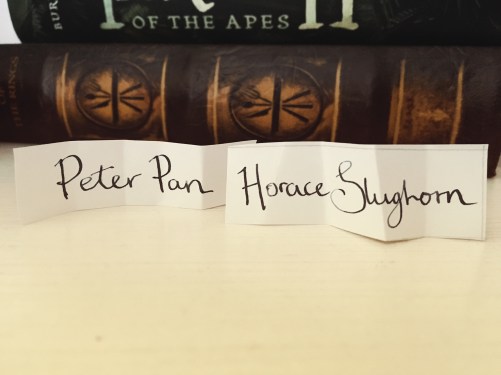 BUR
OF THE APES
Peter Pan
Horace Slughorn